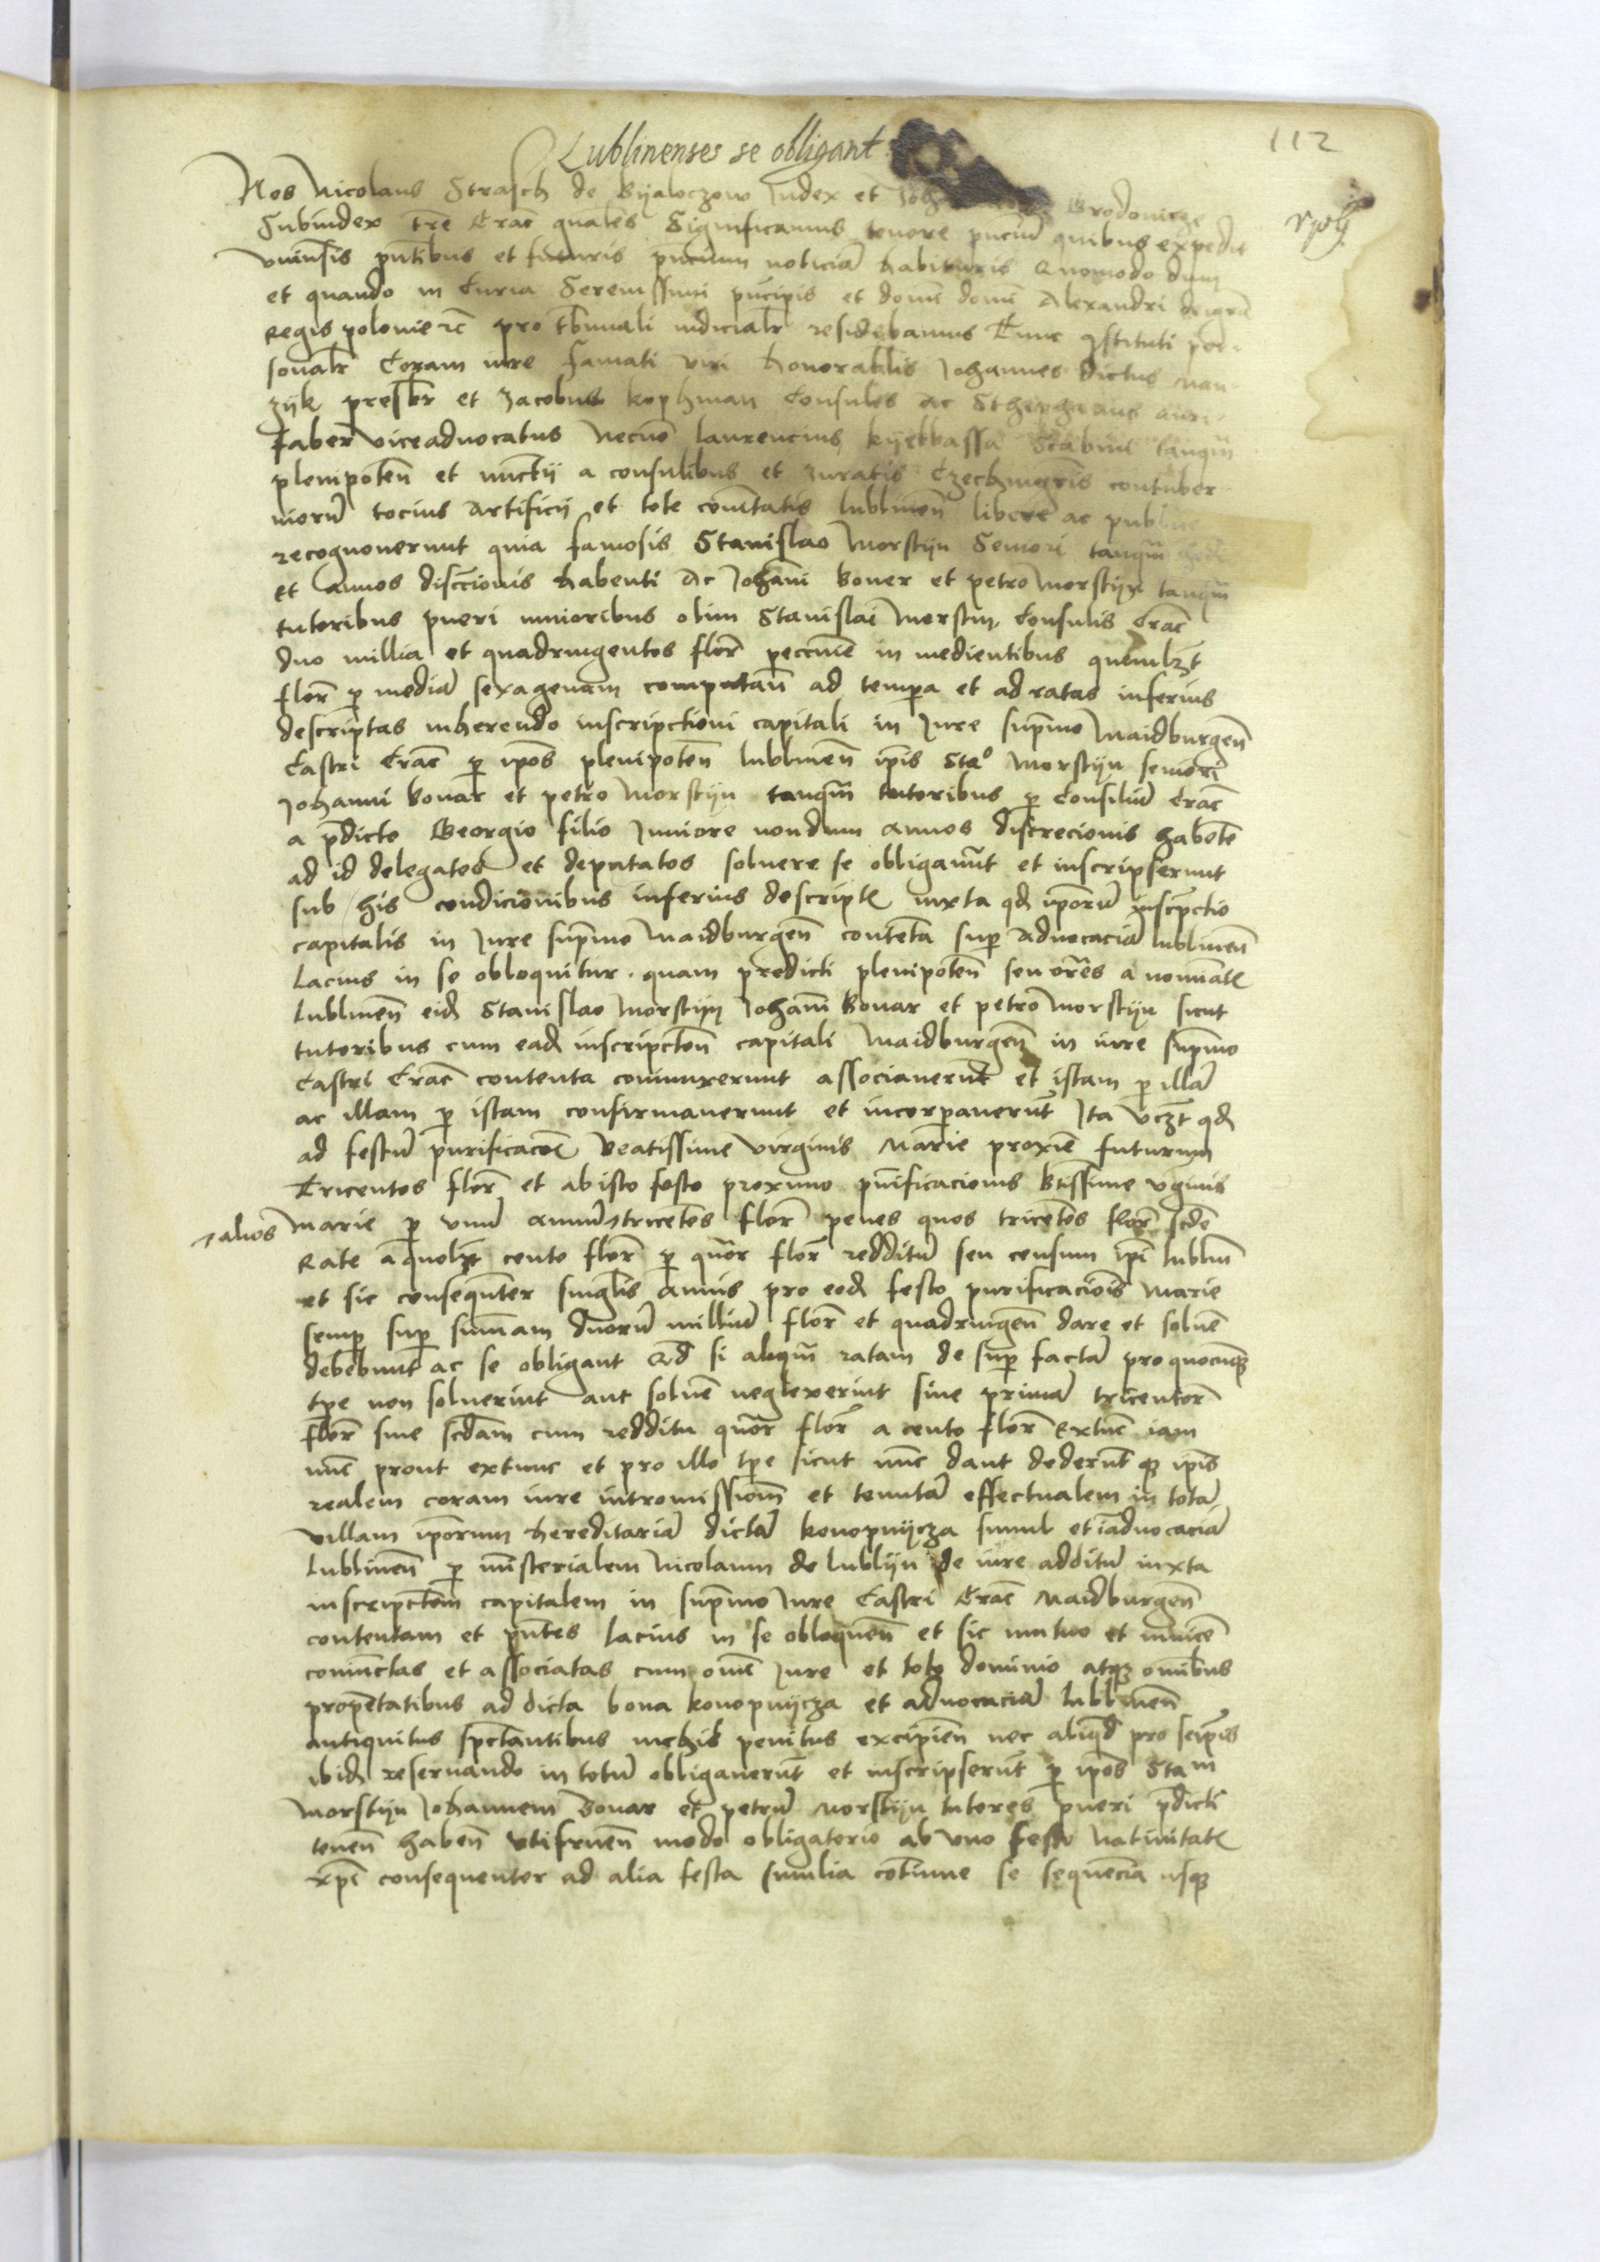 112
Lublinenses se obligant
Nos Nicolaus Strasch de Byaloczow Judex et Joh Grodowicze
Subiudex tre Crac gnales Significamus tenore pncium quibus expedit
vniusis pntibus et futuris pncium noticia habituris Quomodo dum
et quando in Curia Serenissimi pncipis et domi domi Alexandri dei gra
Regis polonie rc pro tbunali iudicialr residebamus Tunc constituti per-
sonalr Coram iure famati viri honorabilis Johannes dictus
presbr et Jacobus kophman Consules ac Stheph auri-
faber viceaduocatus Necno laurencius kyelbassa Scabini tanqm
plenipoten et nunctij a consulibus et Juratis Czechmgris contuber-
niorum tocius artificij et tote comitatis lublinen libere ac publice
recognouerunt quia famosis Stanislao Morstijn Seniori tanqm
et annos disccionis habenti Ac Johani Boner et petro Morstijn tanqm
tutoribus pueri iunioribus olim Stanislai Morstin Consulis Crac
duo millia et quadringentos flor peccunie in medientibus quemlzt
flor p media sexagenam computan ad tempa et ad ratas inferius
descriptas inherendo inscripctioni capitali in Jure supmo Maidburgen
Castri Crac p ipos plenipoten lublinen ipis Sta° Morstijn seniori
Johanni Bonar et petro Morstijn tanqm tutoribus p Consiliu Crac
a pdicto Georgio filio Juniore nondum annos discrecionis habete
ad id delegatos et deputatos soluere se obligarut et inscripserunt
sub his condicionibus inferius descriptis iuxta qd iporu inscpctio
capitalis in Jure supmo Maidburgen contenta sup Aduocacia lublinen
Lacius in se obloquitur. quam predicti plenipoten seu orares a nomiatis
Lublinen eid Stanislao Morstijn Johani Bonar et petro Morstijn sicut
tutoribus cum ead inscripcton capitali Maidburgen in iure supmo
Castri Crac contenta coniunxerunt associauerunt et istam p illa
ac illam p istam confirmauerunt et incorpauerut Ita vczt qd
ad festu purificacois Beatissime virginis Marie proxie futurum
Tricentos flor et ab isto festo proximo puificacionis btissime vginis
7 alios Marie p vnu annu tricetos flor penes quos tricetos flor scde
Rate a quolzt cento flor p quor flor redditu seu censum ipi lublin
et sic consequnter singlis annis pro eod festo purificacionis Marie
semp sup summam duoru milliu flor et quadringen dare et soluē
debebunt ac se obligant Qd si aliqm ratam de sup facta pro quocuqz
tpe non soluerint aut soluē neglexerint siue prima tricentor
flor siue scdam cum redditu quor flor a cento flor Extuc iam
nuc prout extunc et pro illo tpe sicut nuc dant dederut qz ipis
realem coram iure intromissiom et tenuta effectualem in tota
villam iporum hereditaria dicta konopnijcza simul et i aduocacia
Lublinen p misterialem Nicolaum de Lublijn de iure additu iuxta
inscripctom capitalem in supmo Jure Castri Crac Maidburgen
contentam et pntes Lacius in se obloquen et sic mutuo et inuice
coniunctas et associatas cum omi Jure et toto dominio atqz omibus
propetatibus ad dicta bona konopnijcza et aduocacia lublinen
antiquitus spctantibus nichil penitus excipien nec aliqd pro seipis
ibid reseruando in totu obligauerut et inscripserut p ipos Stam
Morstijn Johannem Bonar et petru Morstijn tutores pueri pdicti
tenen haben vtifruen modo obligatorio ab vno festo Natiuitatis
xpi consequenter ad alia festa similia cotinue se sequecia usqz